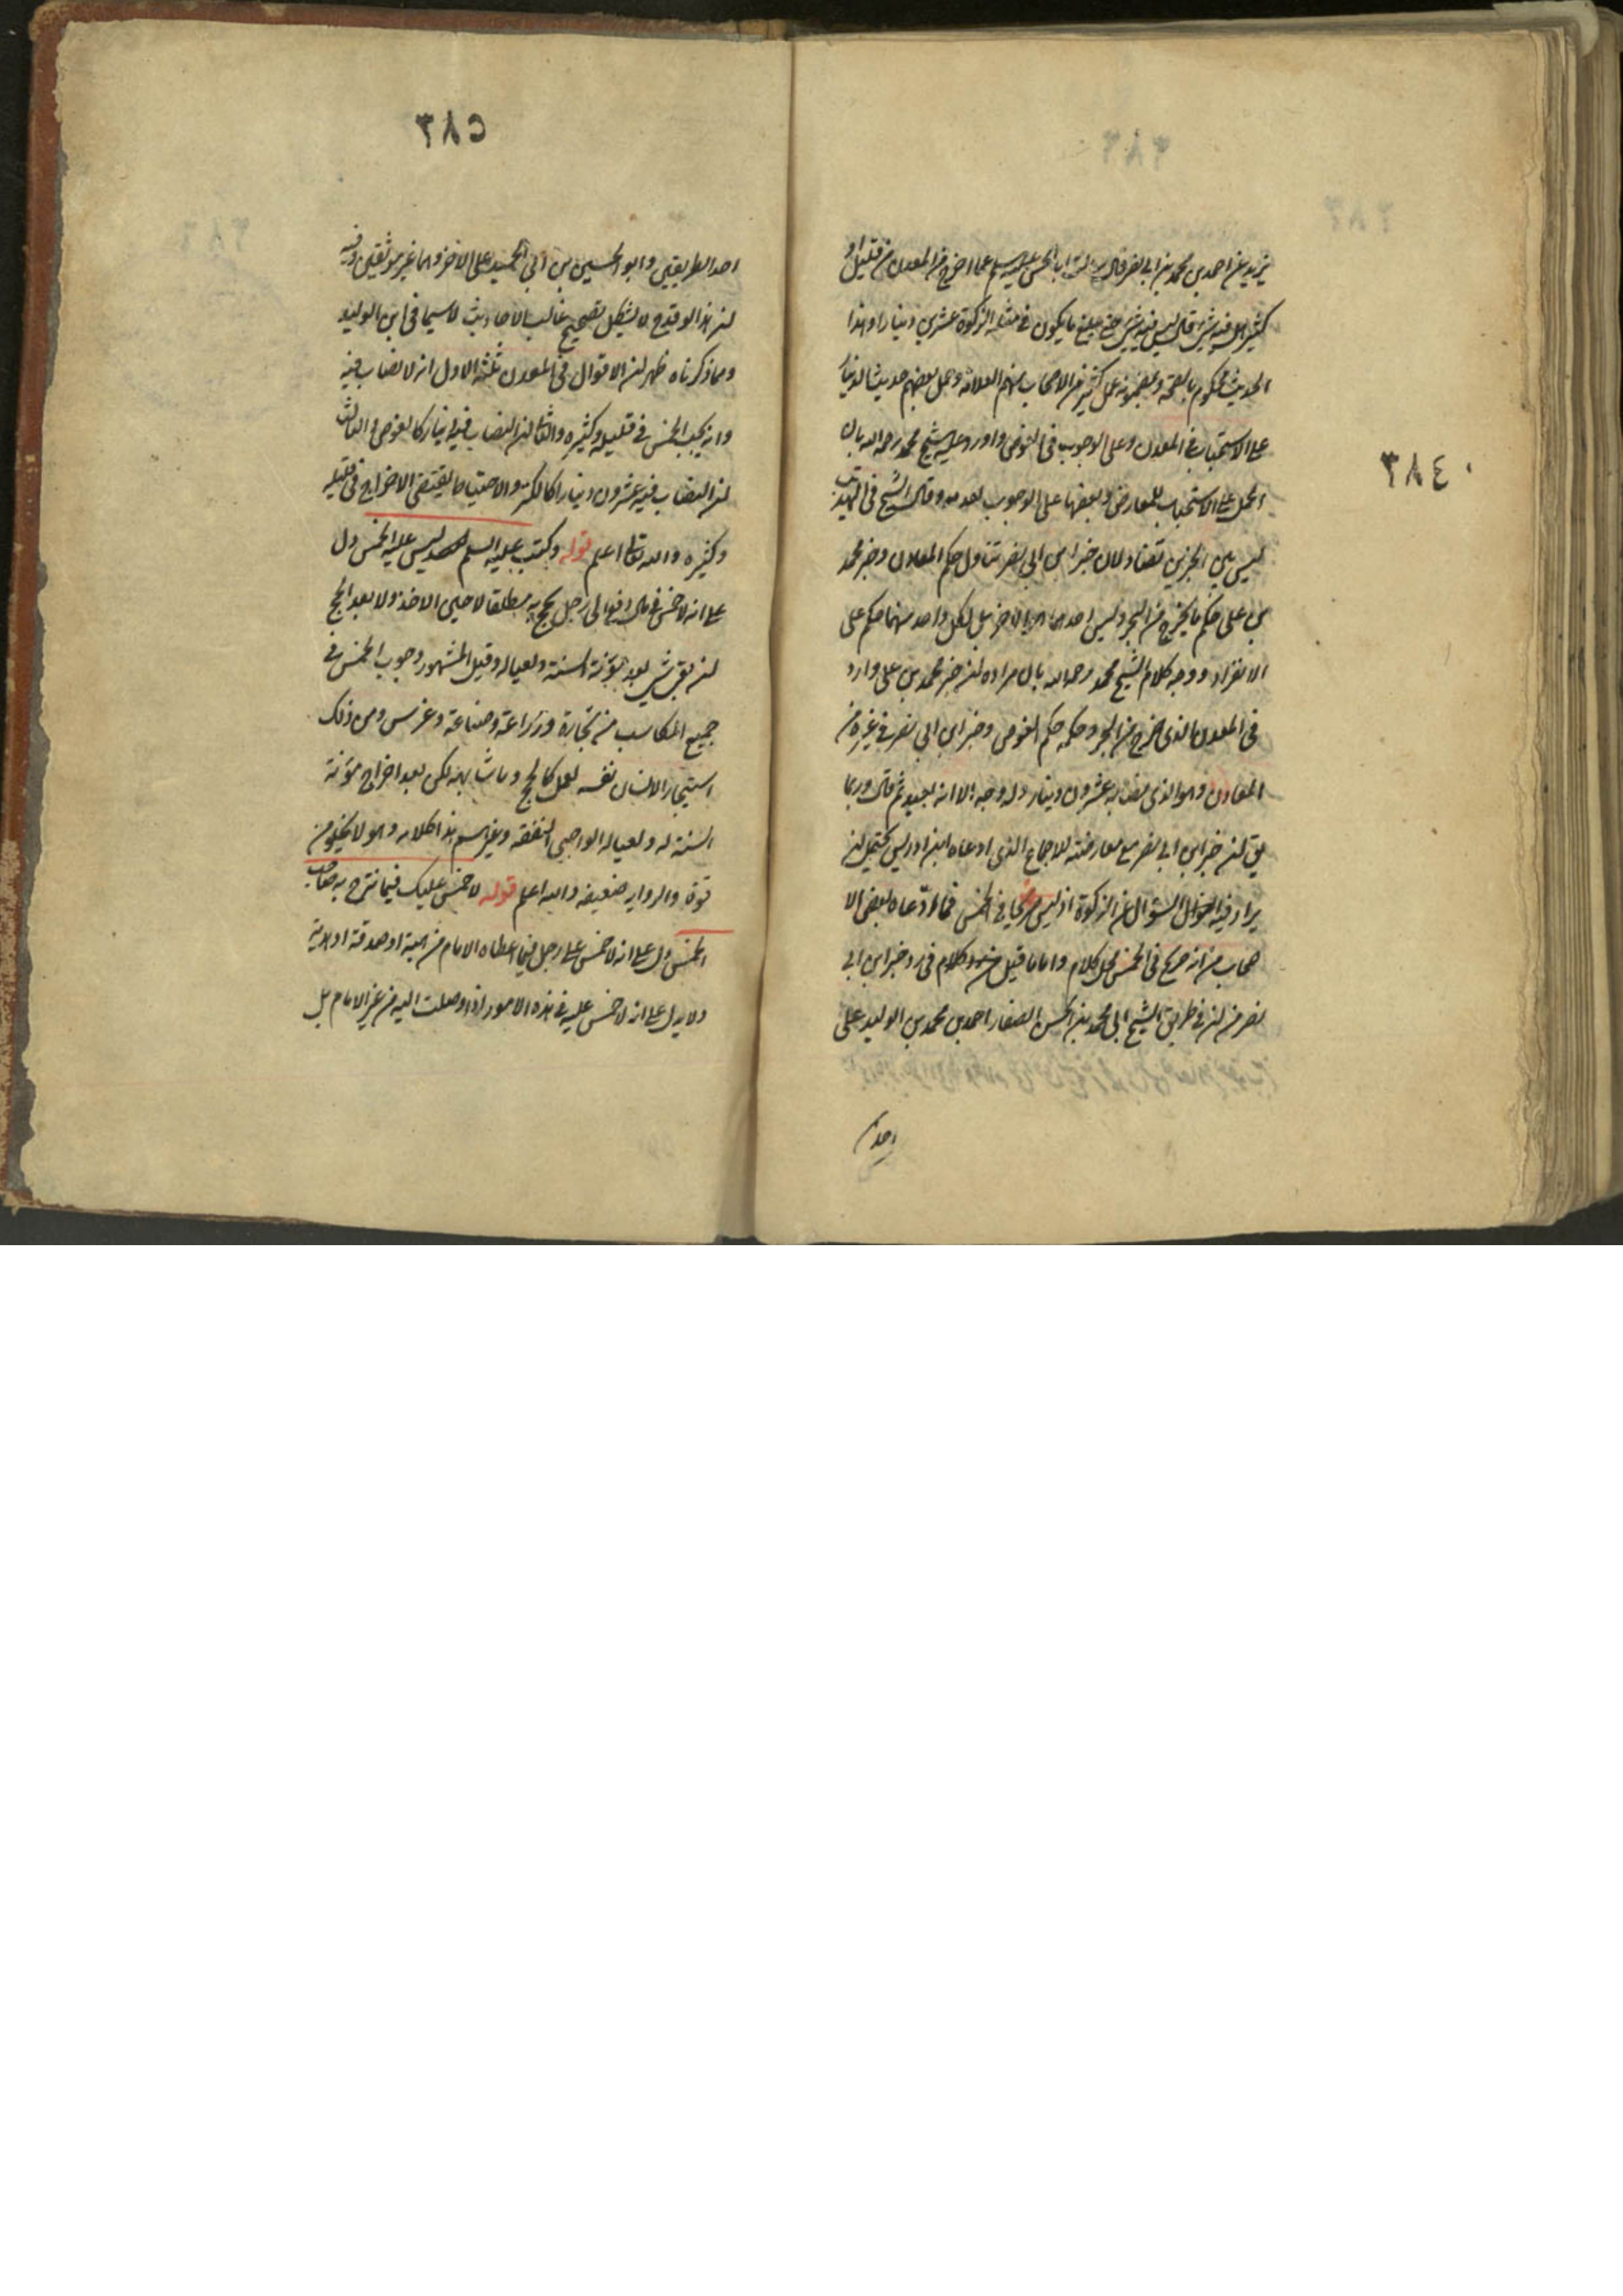 يزيد عن احمد بن محمد بن ابي نصر قال سالت ابا الحسن عليه السلم عما اخرج من المعدن من قليل او
كثير هل فيه شئ قال ليس فيه شئ حتى يبلغ ما يكون في مثله الزكوة عشرين دينارا وهذا
الحديث محكوم بالصحة وبمضمونه عمل كثير من الاصحاب منهم العلامة وحمل بعضهم حديث الدينار
على الاستحباب في المعدن وعلى الوجوب في الغوص واورد عليه الشيخ محمد رحمه الله بان
الحمل على الاستحباب للمعارض وبعضها على الوجوب لعدمه وقال الشيخ في التهذيب
ليس بين الخبرين تضاد لان خبر ابن ابي نصر تناول حكم المعادن وخبر محمد
بن على حكم ما يخرج من البحر وليس احدهما هو الاخر بل لكل واحد منهما حكم على
الانفراد ووجه كلام الشيخ محمد رحمه الله بان مراده ان خبر محمد بن على وارد
في المعدن الذى خرج من البحر وحكمه حكم الغوص وخبر ابن ابي نصر في غيره من
المعادن وهو الذى نصابه عشرون دينار وله وجه الا انه بعيد ثم قال وربما
يق ان خبر ابن ابي نصر مع معارضته للاجماع الذى ادعاه ابن ادريس يحتمل ان
يراد فيه السؤال عن الزكوة اذ ليس صريحا في الخمس فما ادّعاه بعض الا
صحاب من انه صريح في الخمس محل كلام واما ما قيل كلام في رد خبر ابن ابي
نصر من ان في طريق الشيخ الى محمد بن الحسن الصفار احمد بن محمد بن الوليد على
احد
٣٨٤
٣٨٥
احد الطريقين وابو الحسين بن ابي الجيد على الاخر وهما غير موثقين وفيه
ان هذا لو قدح لاشكل تصحيح غالب الاحاديث لا سيما في ابن الوليد
ومما ذكرناه ظهر ان الاقوال في المعدن ثلثة الاول انه لا نصاب فيه
وانه يجب الخمس في قليله وكثيره والثاني ان النصاب فيه دينار كالغوص والثالث
ان النصاب فيه عشرون دينارا كالكنز والاحتياط يقتضى الاخراج في قليله
وكثيره والله تعالى اعلم قوله وكتب عليه السلم ليس عليه الخمس دل
على انه لا خمس في مال دفع الى رجل يحج به مطلقا لا حين الاخذ ولا بعد الحج
ان بقى شئ بعد مؤنة السنة ولعياله وقيل المشهور وجوب الخمس في
جميع المكاسب من تجارة وزراعة وصناعة وغرس ومن ذلك
استيجار الانسان نفسه لعمل كالحج وما شابهه لكن بعد اخراج مؤنة
السنة له ولعياله الواجبى النفقة وغيرهم هذا كلامه وهو لا يخلو من
قوة والرواية ضعيفه والله اعلم قوله لا خمس عليك فيما سرح به صاحب
الخمس دل على انه لا خمس على رجل فيما اعطاه الامام من هبة او صدقة او هدية
ولا يدل على انه لا خمس عليه في هذه الامور اذا وصلت اليه من غير الامام بل